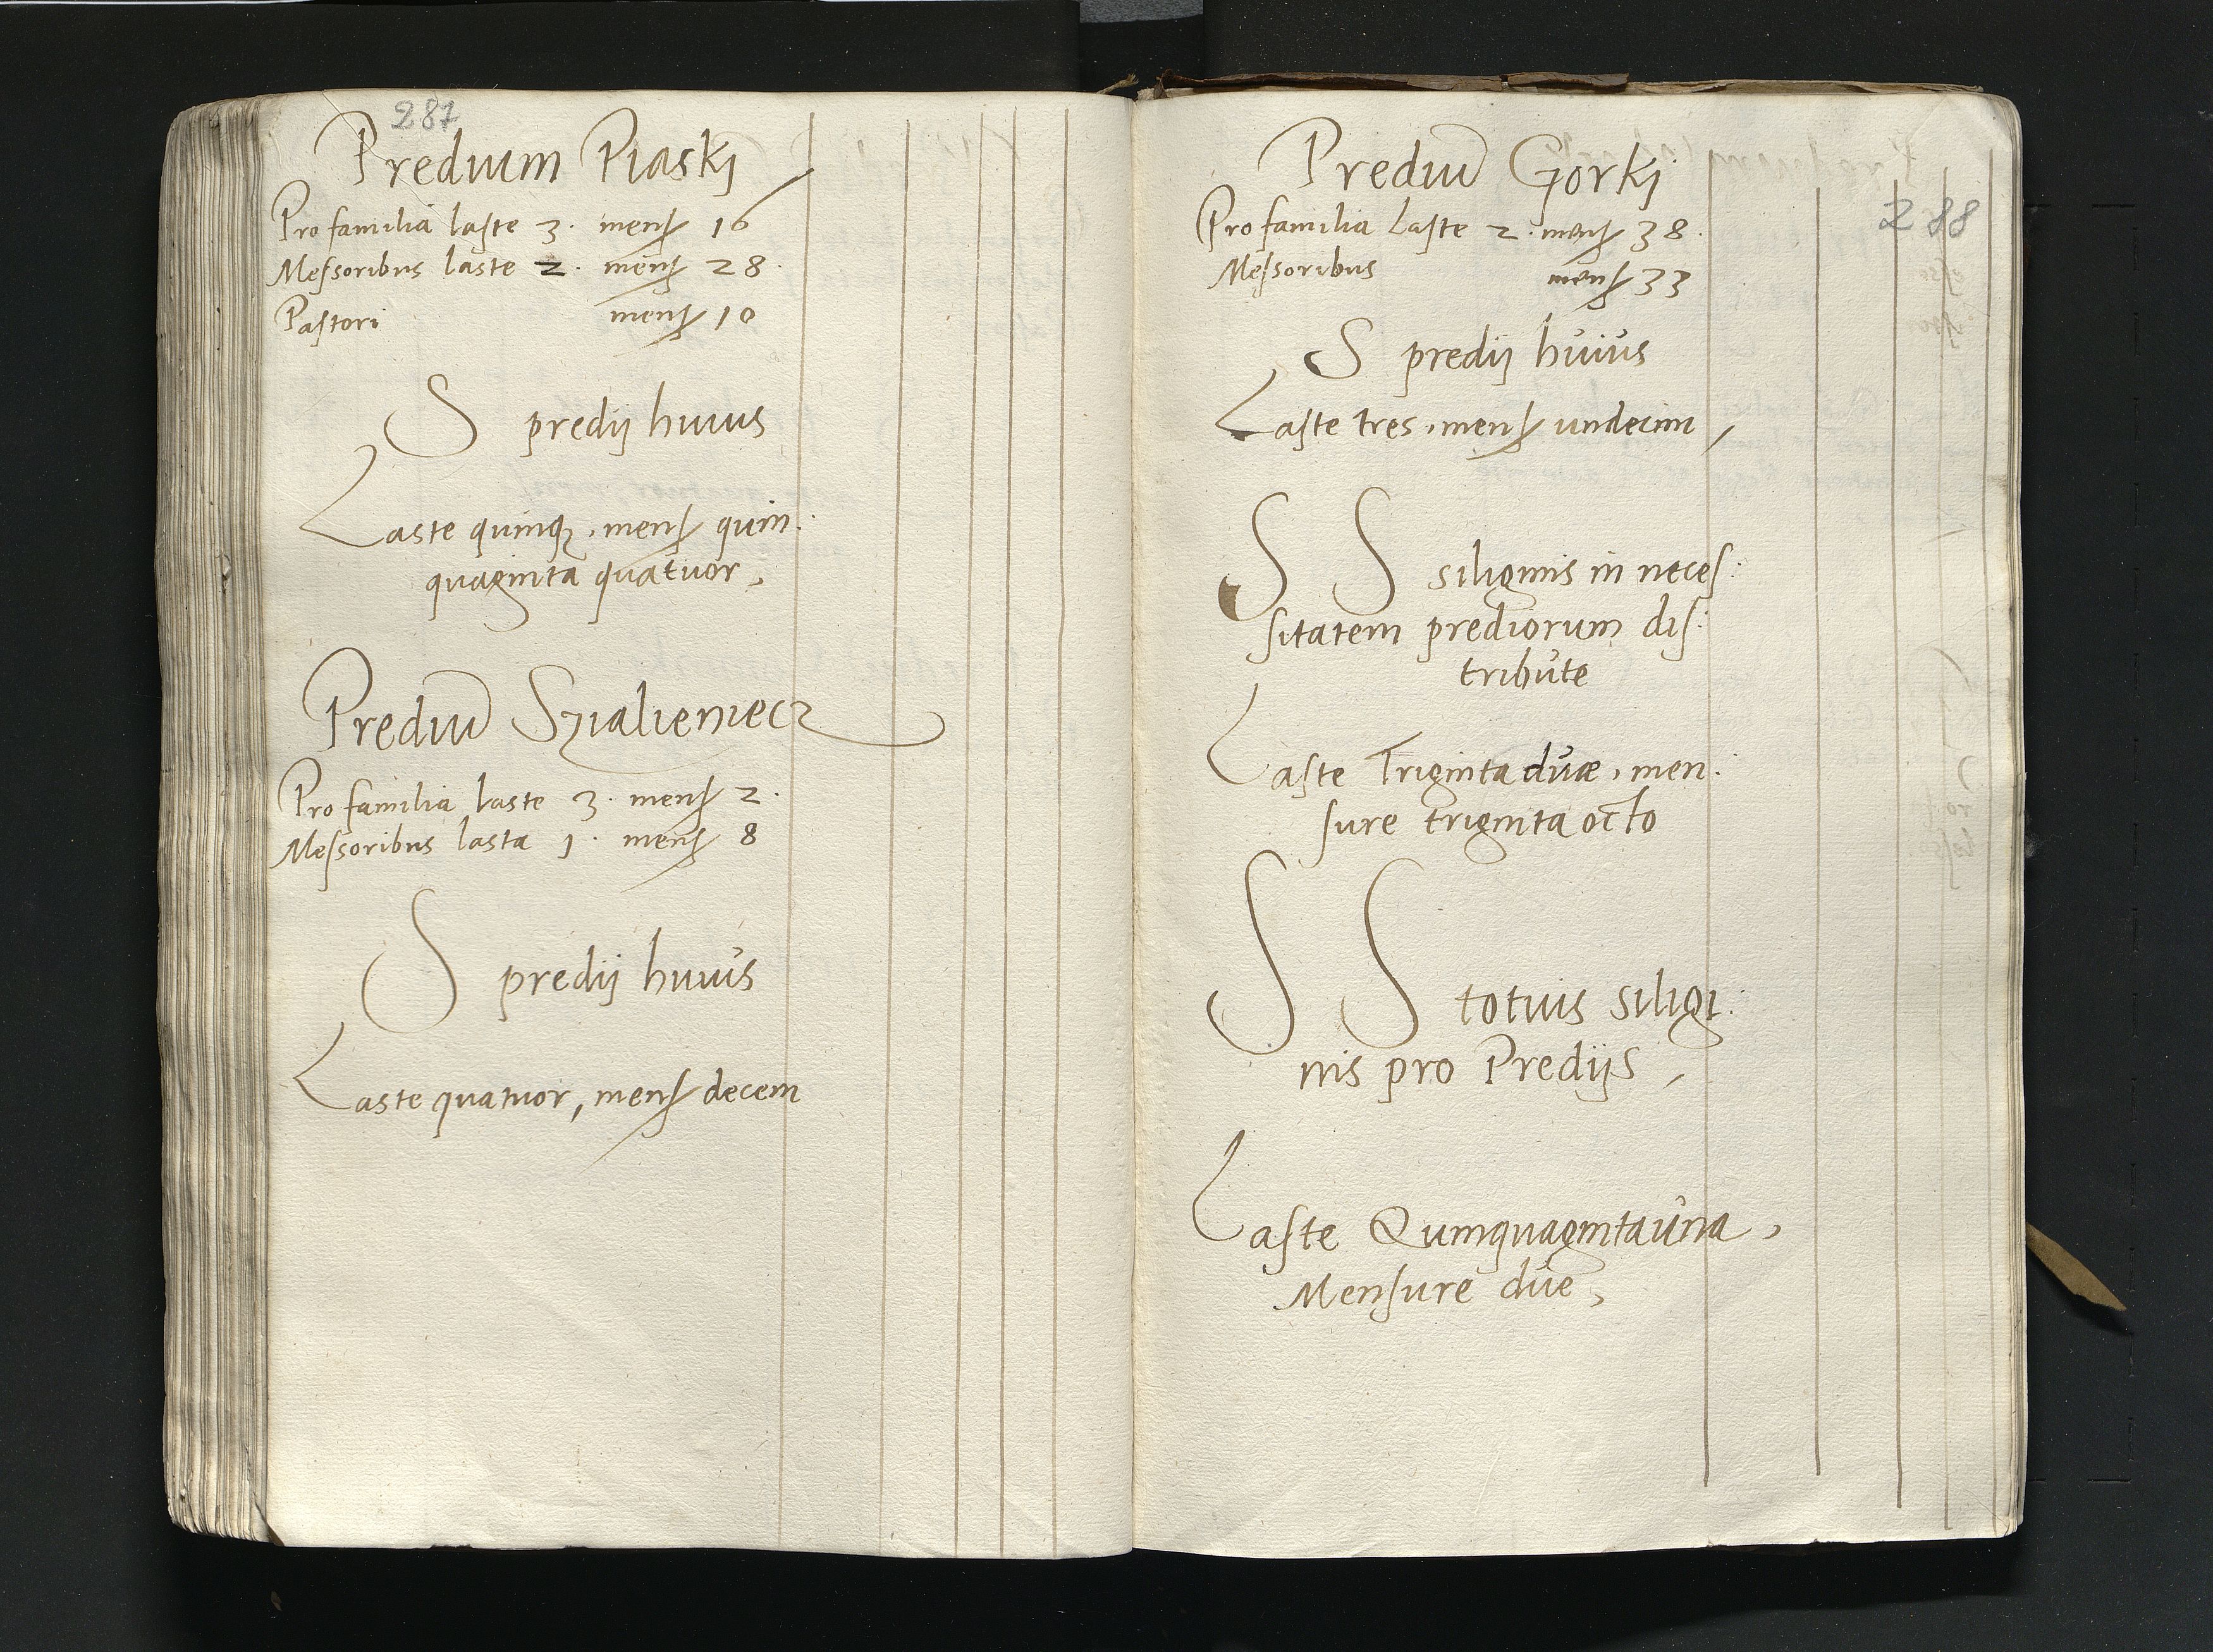 287
Predium Piaskj
Pro familia laste 3. menſ 16
Meſsoribus laste 2. menſ 28.
Paſtori menſ 10
S predij huius
Laste quinqz, menſ quin:
quaginta quatuor,
Prediū Szialieniecz
Pro familia laste 3. menſ 2.
Meſsoribus lasta 1. menſ 8
S predij huius
Laste quatuor, menſ decem
288
Prediū Gorkj
Pro familia Laſte 2. menſ 38.
Meſsoribus menſ 33
S predij huius
Laſte tres, menſ undecim,
S S siliginis in neceſ:
ſitatem prediorum diſ:
tribute
Laſte Triginta duæ, men:
ſure triginta octo
S S totius siligi:
nis pro Predijs,
Laſte Quinquaginta una,
Menſure due,